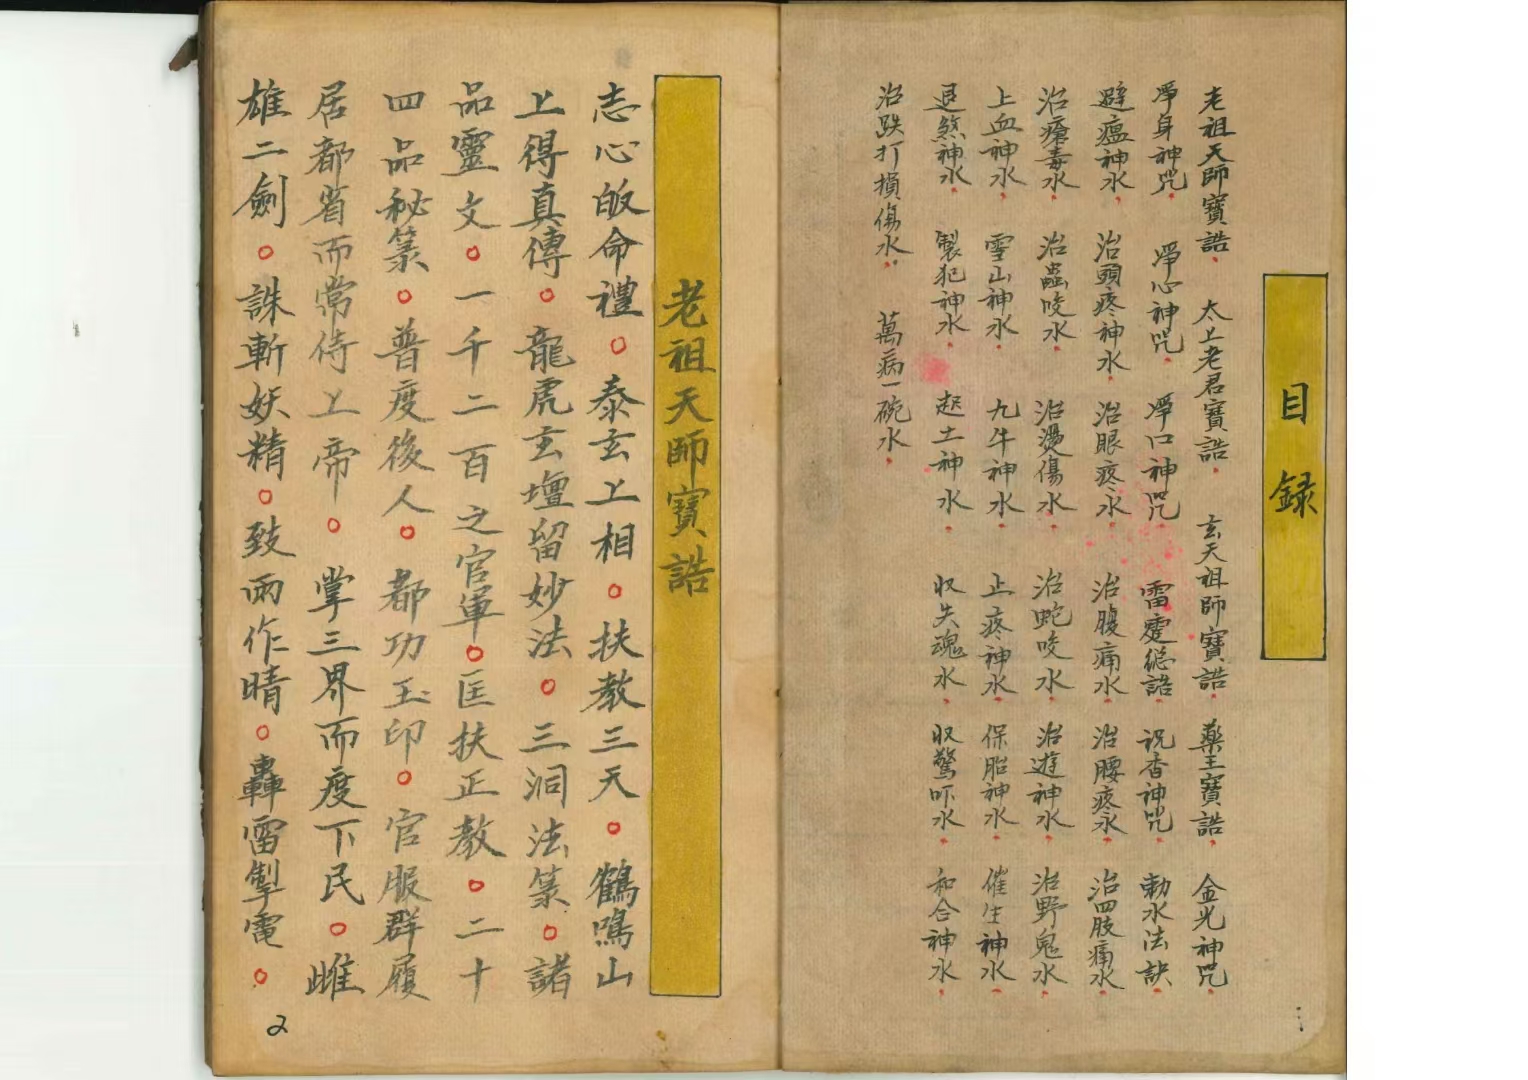 目録
老祖天師寶誥 太上老君寶誥 玄天祖師寶誥 藥王寶誥 金光神咒
淨身神咒 淨心神咒 淨口神咒 雷霆總誥 祝香神咒 勅水法訣
避瘟神水 治頭疼神水 治眼疼水 治腹痛水 治腰疼水 治四肢痛水
治瘡毒水 治蟲咬水 治燙傷水 治蛇咬水 治遊神水 治野鬼水
止血神水 雪山神水 九牛神水 止疼神水 保胎神水 催生神水
退煞神水 製犯神水 起土神水 収失魂水 収驚吓水 和合神水
治跌打損傷水 萬病一碗水
老祖天師寶誥
志心皈命禮○泰玄上相○扶教三天○鶴鳴山
上得真傳○龍虎玄壇留妙法○三洞法箓○諸
品靈文○一千二百之官軍○匡扶正教○二十
四品秘箓○普度後人○都功玉印○官服群履
居都省而常侍上帝○掌三界而度下民○雌
雄二劍○誅斬妖精○致雨作晴○轟雷掣電○
2